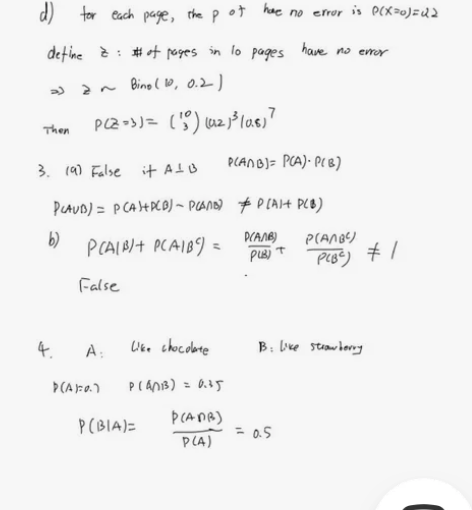 d) for each page, the p of have no error is P(X=0)=0.2
define z : # of pages in 10 pages have no error
=> z ~ Bino(10, 0.2)
Then P(Z=3)= (10 3) (0.2)^3 (0.8)^7
3. (a) False if A⊥B P(A∩B)= P(A)·P(B)
P(A∪B) = P(A)+P(B)-P(A∩B) ≠ P(A)+ P(B)
b) P(A|B)+ P(A|B^c) = P(A∩B)/P(B) + P(A∩B^c)/P(B^c) ≠ 1
False
4. A: Like chocolate B: like strawberry
P(A)=0.7 P(A∩B) = 0.35
P(B|A)= P(A∩B)/P(A) = 0.5